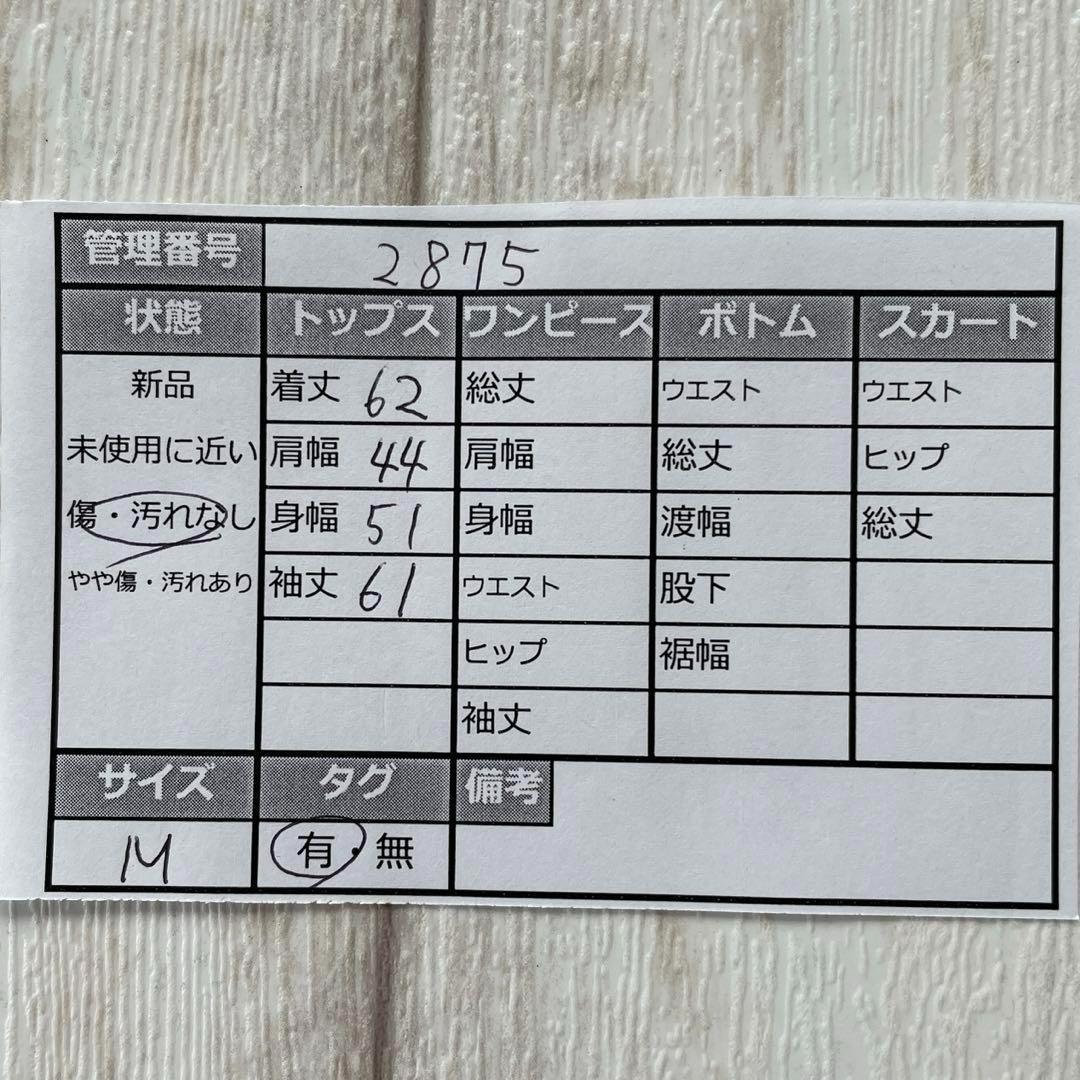 管理番号 2875
状態 トップス ワンピース ボトム スカート
新品 着丈 62 総丈 ウエスト ウエスト
未使用に近い 肩幅 44 肩幅 総丈 ヒップ
傷・汚れなし 身幅 51 身幅 渡幅 総丈
やや傷・汚れあり 袖丈 61 ウエスト 股下
ヒップ 裾幅
袖丈
サイズ タグ 備考
M 有・無